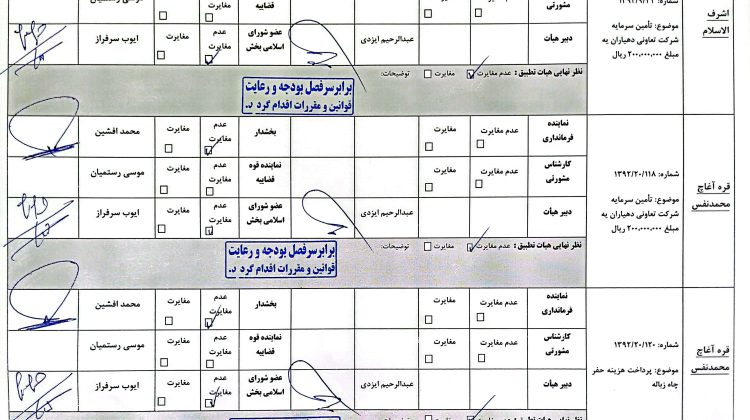 اشرف الاسلام
شماره: ۱۳۹۲/۹/۲۱
موضوع: تأمین سرمایه
شرکت تعاونی دهیاران به
مبلغ ۲۰۰.۰۰۰.۰۰۰ ریال
مشورتی
قضاییه
مغایرت
دبیر هیأت
عبدالرحیم ایزدی
عضو شورای اسلامی بخش
عدم مغایرت
مغایرت
ایوب سرفراز
نظر نهایی هیات تطبیق: عدم مغایرت مغایرت توضیحات:
برابرسرفصل بودجه و رعایت
قوانین و مقررات اقدام گردد.
قره آغاچ محمدنفس
شماره: ۱۳۹۲/۲۰/۱۱۸
موضوع: تأمین سرمایه
شرکت تعاونی دهیاران به
مبلغ ۲۰۰.۰۰۰.۰۰۰ ریال
نماینده فرمانداری
عدم مغایرت
مغایرت
بخشدار
عدم مغایرت
مغایرت
محمد افشین
کارشناس مشورتی
عدم مغایرت
مغایرت
نماینده قوه قضاییه
عدم مغایرت
مغایرت
موسی رستمیان
دبیر هیأت
عبدالرحیم ایزدی
عضو شورای اسلامی بخش
عدم مغایرت
مغایرت
ایوب سرفراز
نظر نهایی هیات تطبیق: عدم مغایرت مغایرت توضیحات:
برابرسرفصل بودجه و رعایت
قوانین و مقررات اقدام گردد.
قره آغاچ محمدنفس
شماره: ۱۳۹۲/۲۰/۱۲۰
موضوع: پرداخت هزینه حفر
چاه زباله
نماینده فرمانداری
عدم مغایرت
مغایرت
بخشدار
عدم مغایرت
مغایرت
محمد افشین
کارشناس مشورتی
عدم مغایرت
مغایرت
نماینده قوه قضاییه
عدم مغایرت
مغایرت
موسی رستمیان
دبیر هیأت
عبدالرحیم ایزدی
عضو شورای اسلامی بخش
عدم مغایرت
مغایرت
ایوب سرفراز
برابرسرفصل بودجه و رعایت